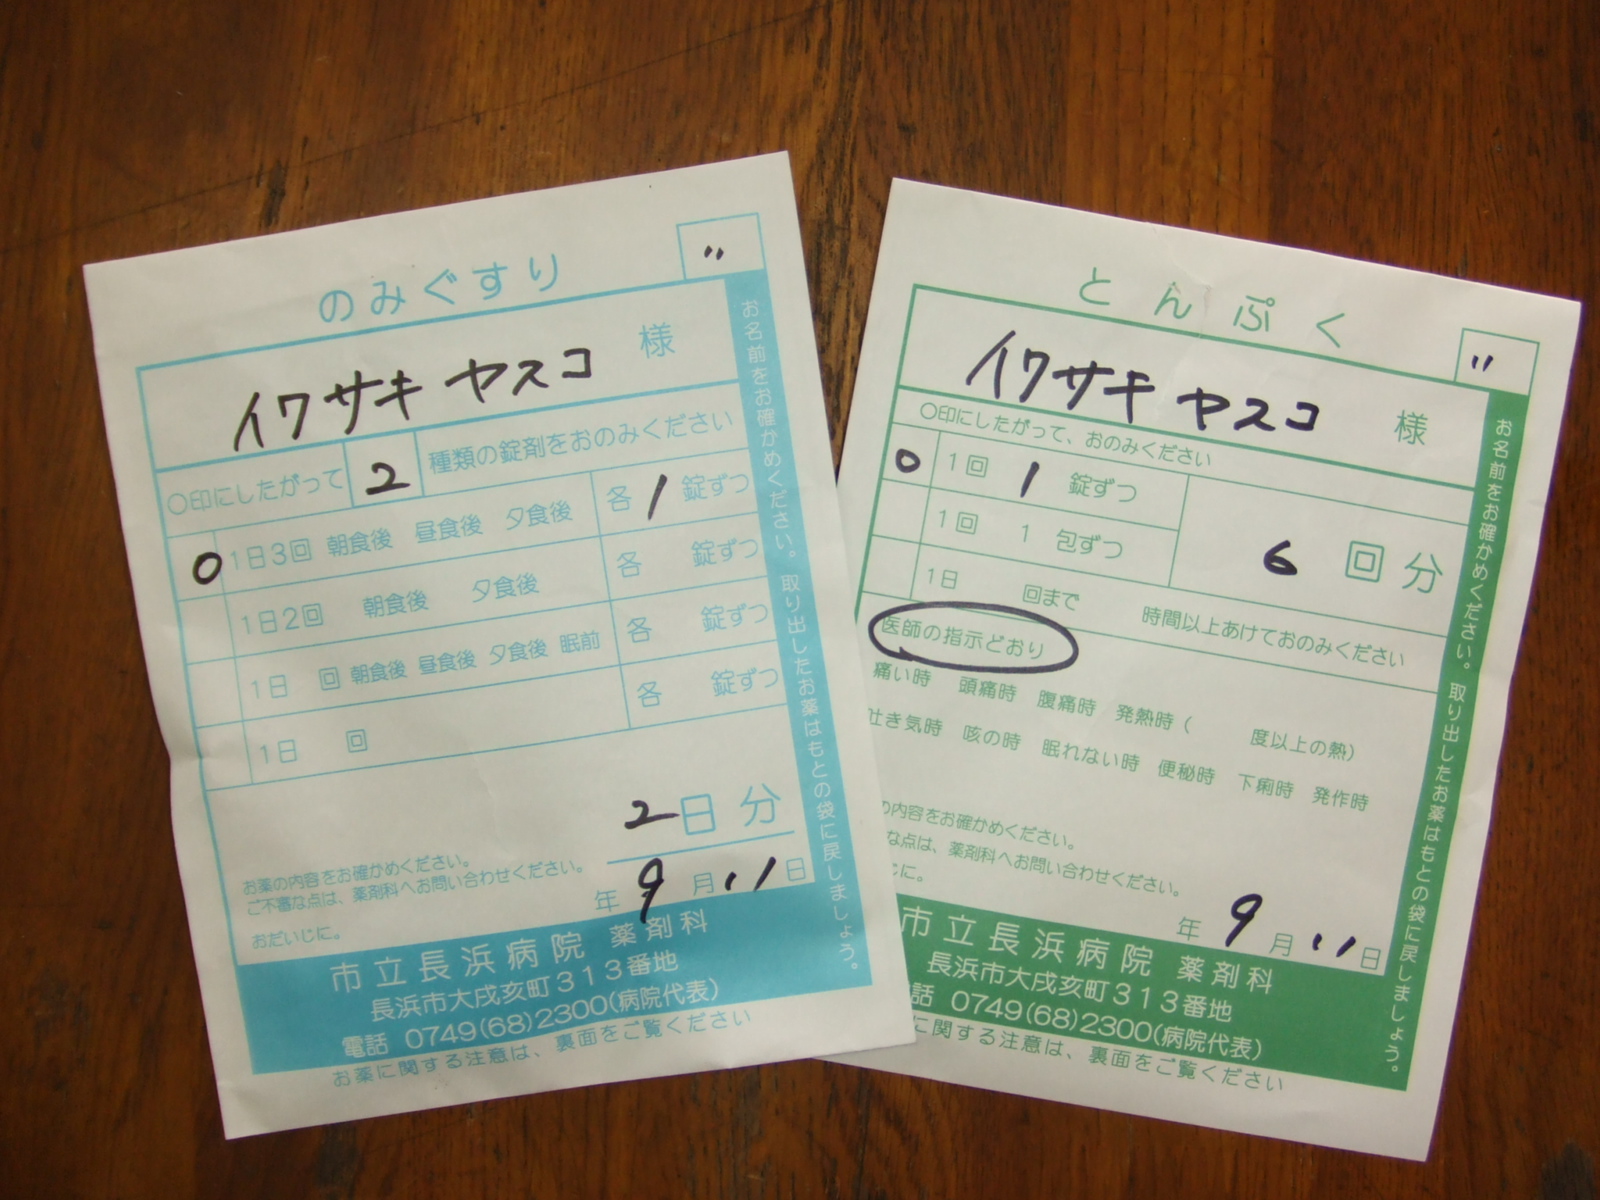 〃
のみぐすり
イワサキ ヤスコ 様
〇印にしたがって 2 種類の錠剤をおのみください
0 1日3回 朝食後 昼食後 夕食後 各 1 錠ずつ
1日2回 朝食後 夕食後 各 錠ずつ
1日 回 朝食後 昼食後 夕食後 眠前 各 錠ずつ
1日 回 各 錠ずつ
2日分
お薬の内容をお確かめください。
ご不審な点は、薬剤科へお問い合わせください。
おだいじに。
年 9 月 11 日
市立長浜病院 薬剤科
長浜市大戌亥町313番地
電話 0749(68)2300(病院代表)
お薬に関する注意は、裏面をご覧ください
お名前をお確かめください。取り出したお薬はもとの袋に戻しましょう。
〃
とんぷく
イワサキ ヤスコ 様
〇印にしたがって、おのみください
0 1回 1 錠ずつ
1回 1 包ずつ
6 回分
1日 回まで 時間以上あけておのみください
医師の指示どおり
痛い時 頭痛時 腹痛時 発熱時( 度以上の熱)
吐き気時 咳の時 眠れない時 便秘時 下痢時 発作時
の内容をお確かめください。
な点は、薬剤科へお問い合わせください。
じに。
年 9 月 11 日
市立長浜病院 薬剤科
長浜市大戌亥町313番地
話 0749(68)2300(病院代表)
に関する注意は、裏面をご覧ください
お名前をお確かめください。取り出したお薬はもとの袋に戻しましょう。